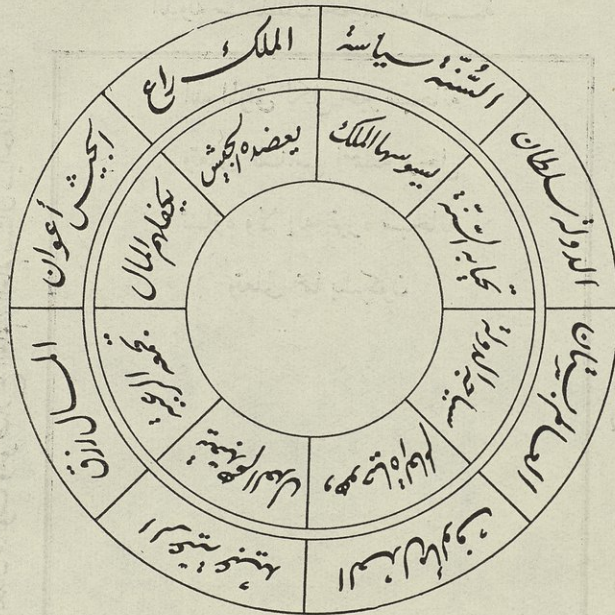 العالم بستان
سياجه الدولة
الدولة سلطان
تحيا به السنّة
السُّنّة سياسة
يسوسها الملك
الملك راع
يعضده الجيش
الجيش أعوان
يكفلهم المال
المال رزق
تجمعه الرعية
الرعية عبيد
يتعبدهم العدل
العدل مألوف
وهو حياة العالم